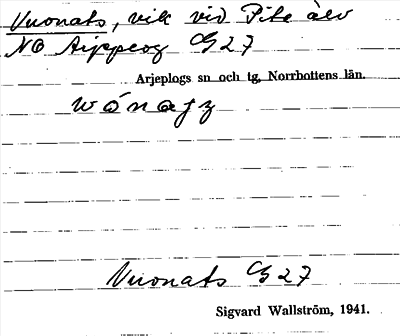 Vuonats, vik vid Pite älv
NO Arjeplog G27
Arjeplogs sn och tg, Norrbottens län.
wónajz
Vuonats G27
Sigvard Wallström, 1941.